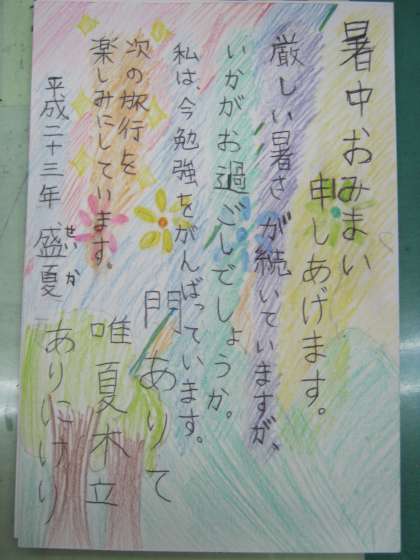 暑中おみまい
申しあげます。
厳しい暑さが続いていますが、
いかがお過ごしでしょうか。
私は、今勉強をがんばっています。
次の旅行を
楽しみにしています。
平成二十三年 盛夏
せいか
門ありて
唯夏木立
ありにけり